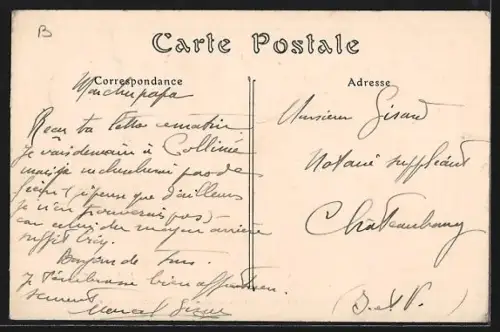 B
Carte Postale
Correspondance
Adresse
Mon cher papa
Reçu ta lettre ce matin
Je vais demain à Collinée
mais je ne chercherai pas de
(je pense que d'ailleurs
je n'en trouverais pas)
car celui du moyeu arrière
suffit
Bonjour de tous.
Je t'embrasse bien affectueu
sement
Marcel
Monsieur Gisard
Notaire suppléant
Châteaubourg
(I. et V.)